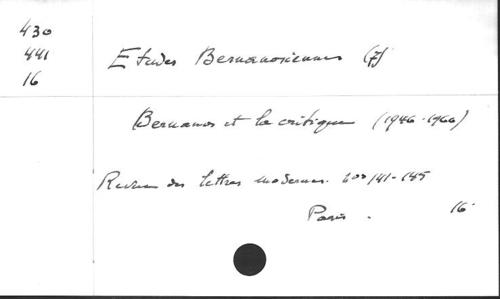 430
441
16
Etudes Bernanosiennes (7)
Bernanos et la critique (1946-1966)
Revue des lettres modernes. 141-145
Paris. 16